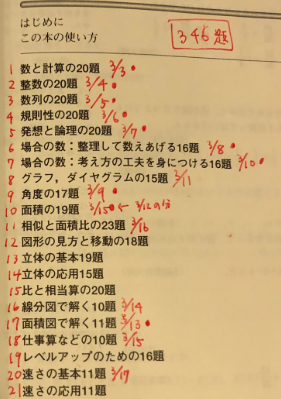 はじめに
この本の使い方
346題
1 数と計算の20題 3/3・
2 整数の20題 3/4・
3 数列の20題 3/5・
4 規則性の20題 3/6・
5 発想と論理の20題 3/7・
6 場合の数：整理して数えあげる16題 3/8・
7 場合の数：考え方の工夫を身につける16題 3/10・
8 グラフ，ダイヤグラムの15題 3/11
9 角度の17題 3/9・
10 面積の19題 3/15・← 3/12の分
11 相似と面積比の23題 3/16
12 図形の見方と移動の18題
13 立体の基本19題
14 立体の応用15題
15 比と相当算の20題
16 線分図で解く10題 3/14
17 面積図で解く11題 3/13・
18 仕事算などの10題 3/15
19 レベルアップのための16題
20 速さの基本11題 3/17
21 速さの応用11題